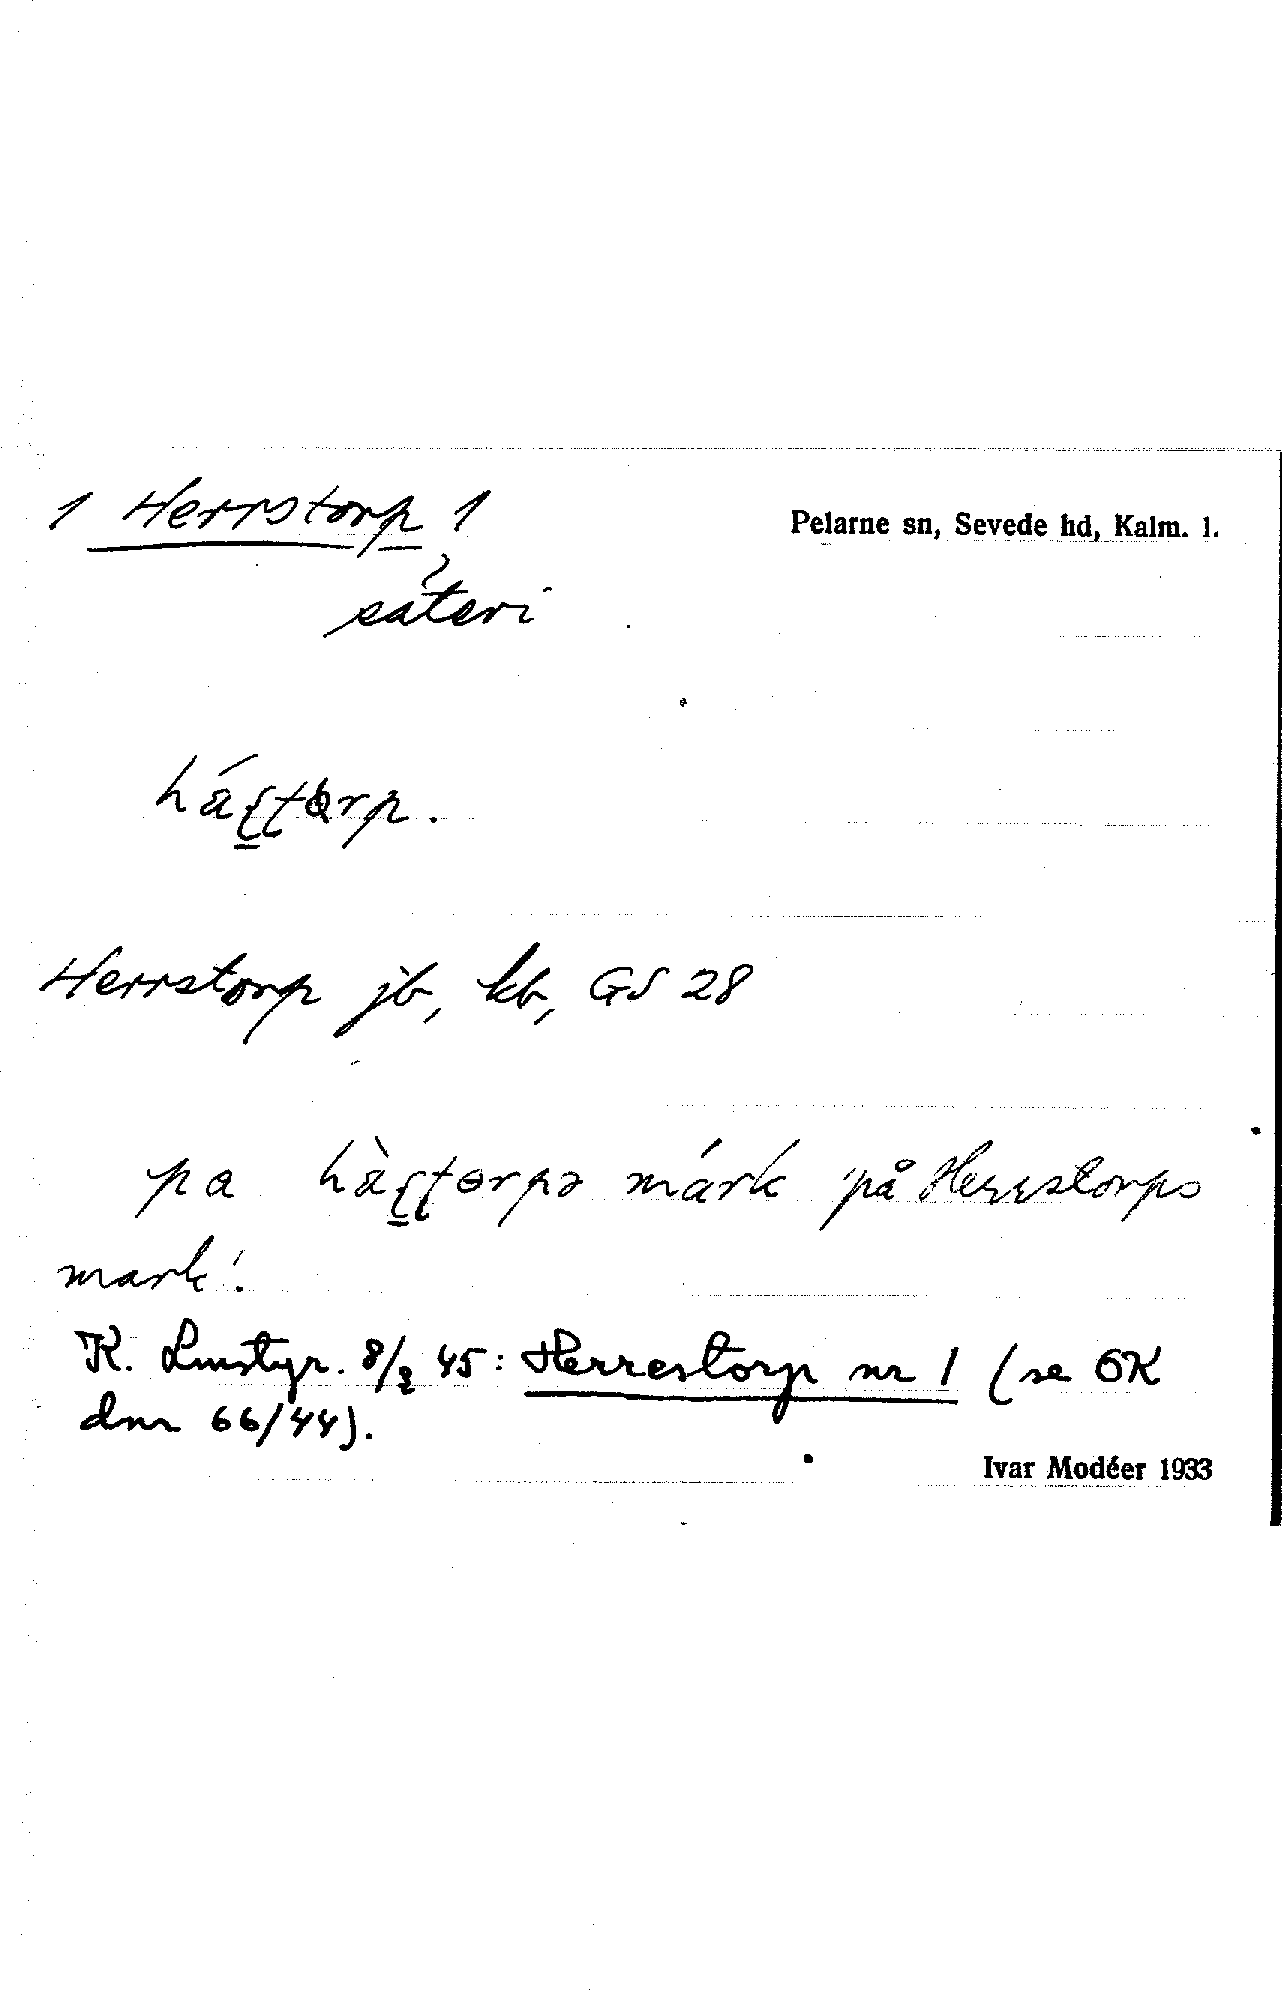 1 Herrstorp 1
Pelarne sn, Sevede hd, Kalm. l.
säteri
Herrstorp jb, kb, GS 28
pa märk 'på Herrstorps
mark'.
K. Lmstyr. 8/2 45: Herrestorp nr 1 (se OK
dnr 66/44).
Ivar Modéer 1933